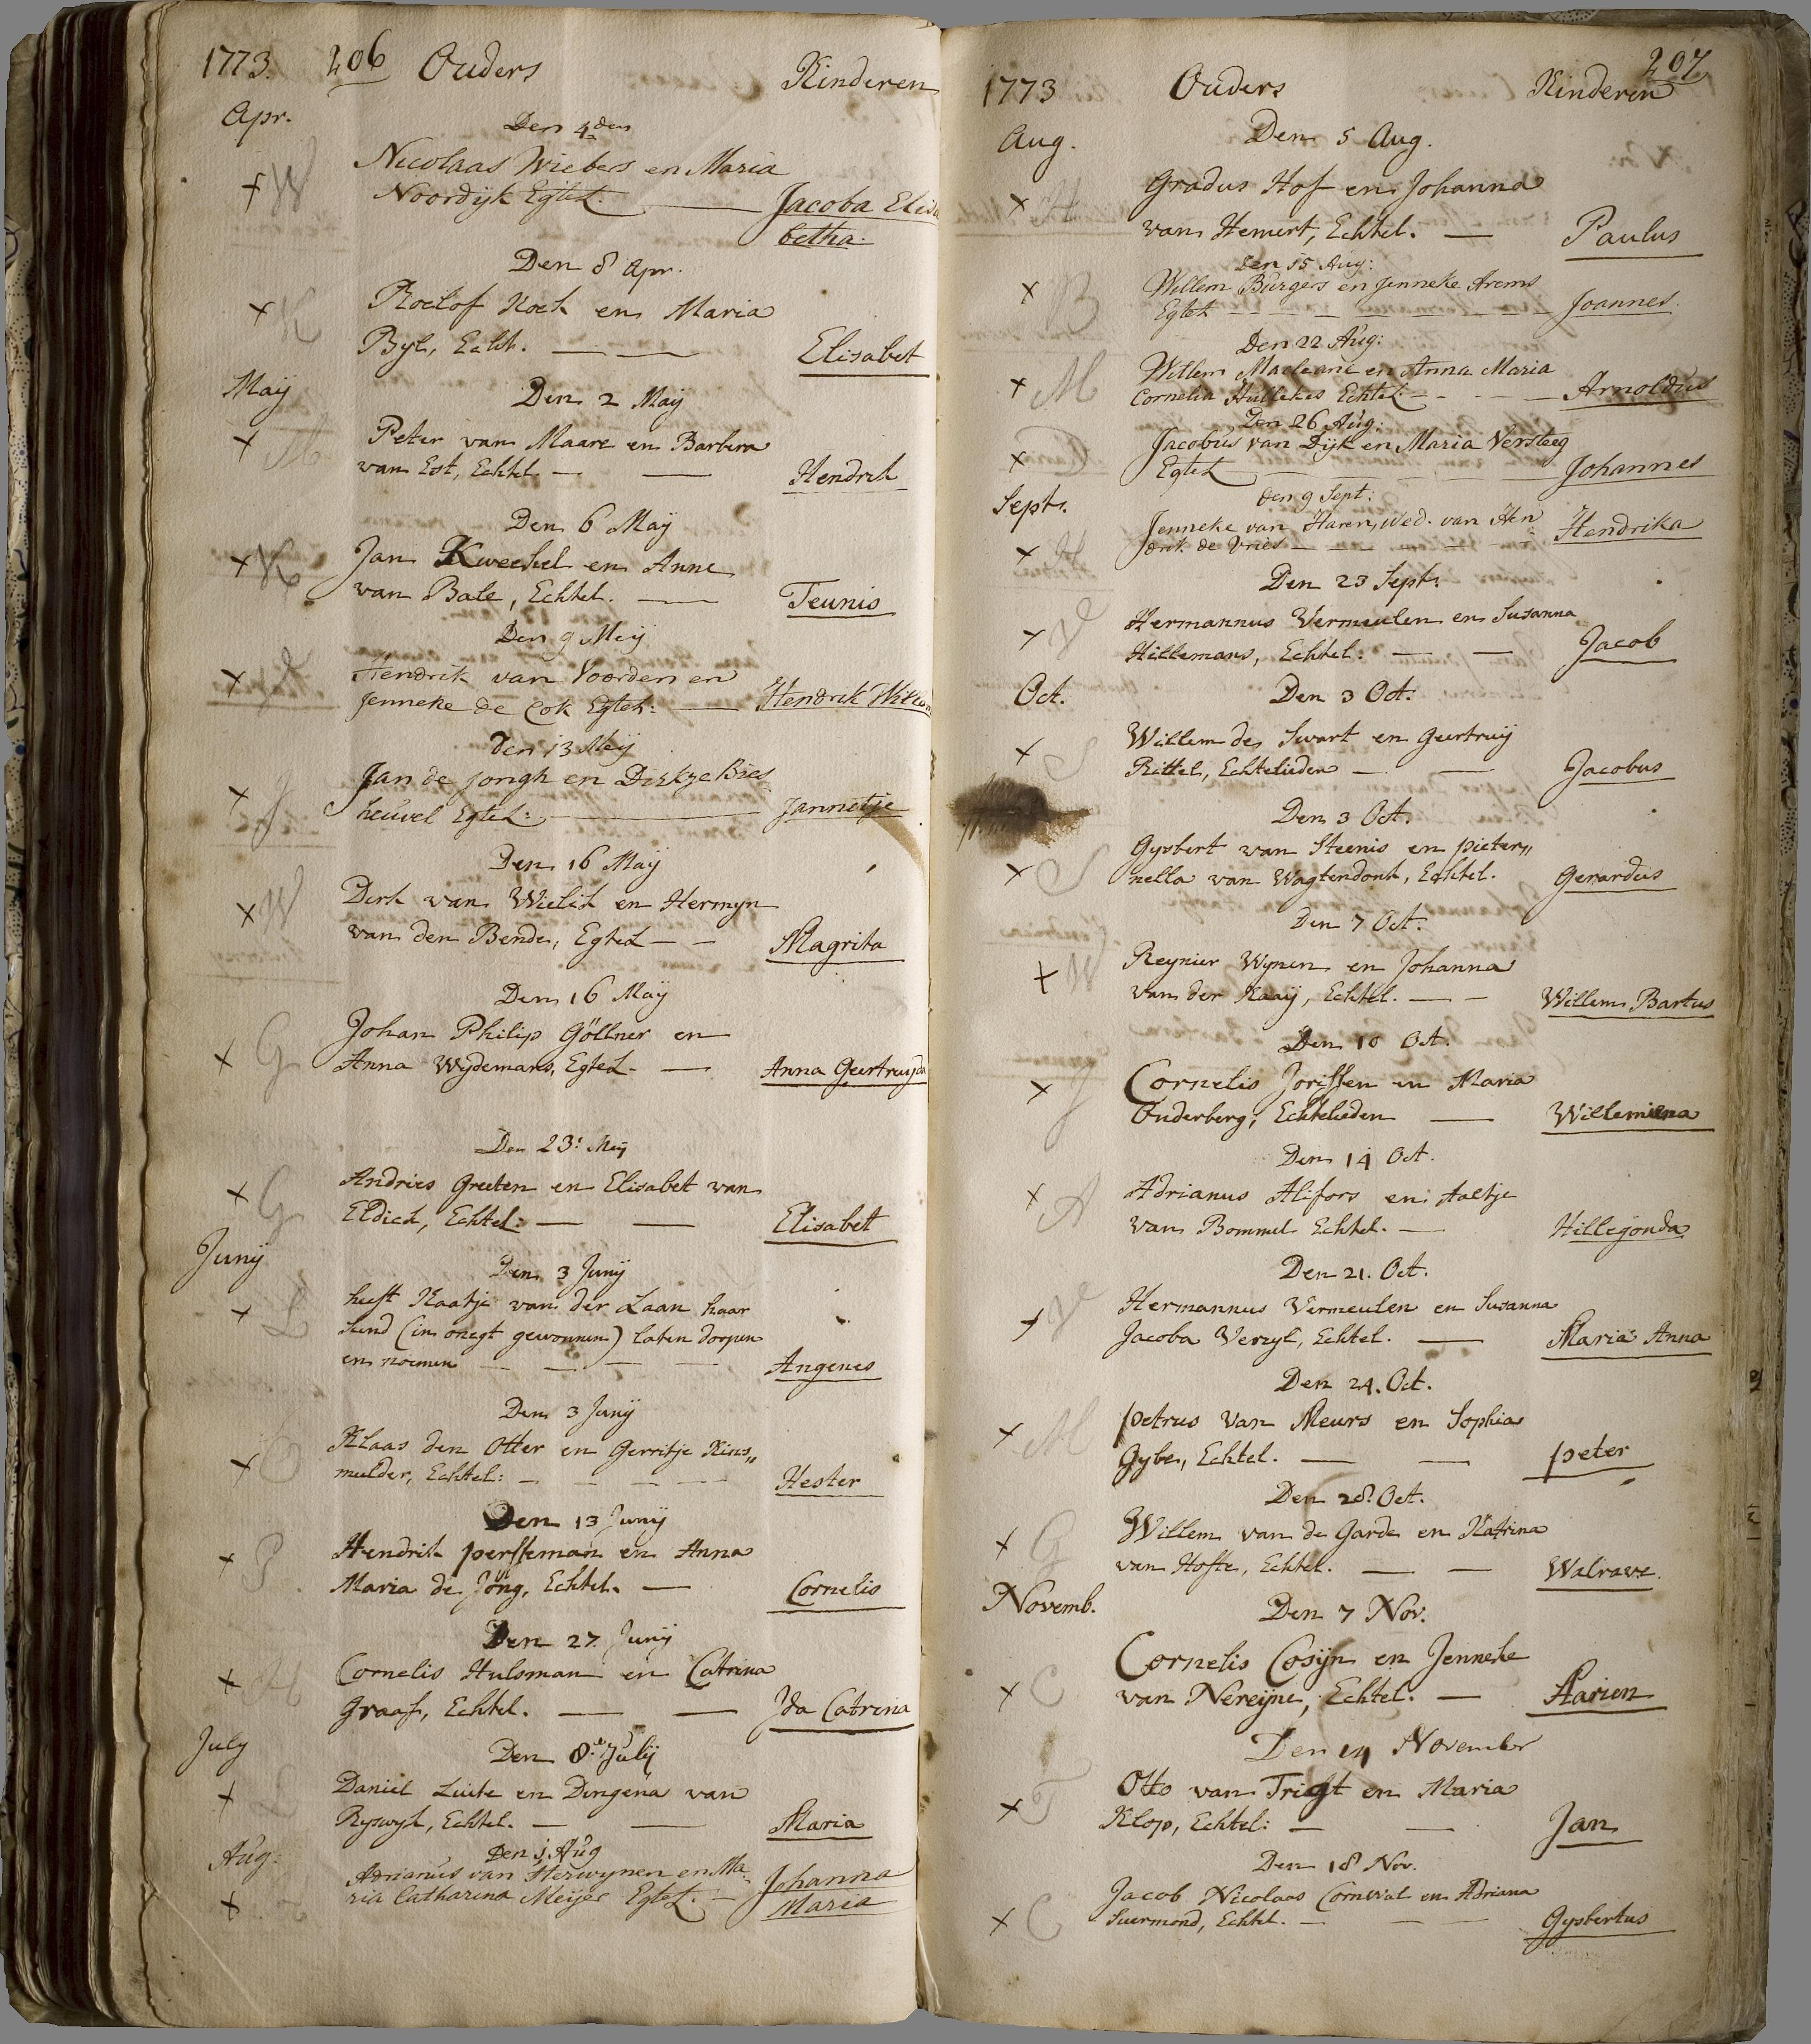 1773. 206 Ouders Kinderen
Apr.
Den 4den
Nicolaas Wiebers en Maria
Noordijk Egtel. Jacoba Elisa
betha.
Den 8 Apr.
Roelof Kock en Maria
Byl, Echt. Elisabet
Maij
Den 2 Maij
Peter van Maare en Barbera
van Est, Echtel. Hendrik
Den 6 Maij
Jan Kweekel en Anne
van Bale, Echtel. Teunis
Den 9 Meij
Hendrik van Voorden en
Jenneke de Cok Egtel: Hendrik Willem
Den 13 Meij
Jan de Jongh en Dirkje Bies
heuvel Egtel: Jannetje
Den 16 Maij
Dirk van Wielik en Hermyn
van den Bende, Egtel Magrita
Den 16 Maij
Johan Philip Göllner en
Anna Wydemans, Egtel. Anna Geertruijda
Den 23: Meij
Andries Greeten en Elisabet van
Eldick, Echtel: Elisabett
Junij
Den 3 Junij
heeft Kaatje van der Laan haar
kind (in onegt gewonnen) laten doopen
en noemen Angenes
Den 3 Junij
Klaas den Otter en Gerritje Kins„
mulder, Echtel: Hester
Den 13 Junij
Hendrik persseman en Anna
Maria de Jong, Echtel. Cornelis
Den 27. Junij
Cornelis Hulsman en Catrina
Graaf, Echtel. Ida Catrina
July
Den 8. Julij
Daniel Luite en Dingena van
Ryswyk, Echtel. Maria
Aug:
Den 1 Aug
Adrianus van Herwynen en Ma„
ria Catharina Meijer Egtel. Johanna
Maria
207
1773 Ouders Kinderen
Aug.
Den 5 Aug.
Gradus Hof en Johanna
van Hemert, Echtel. Paulus
Den 15 Aug:
Willem Burgers en Jenneke Arems
Egtel Joannes
Den 22 Aug:
Willem Macleane en Anna Maria
Cornelia Hullekes Echtel. Arnoldus
Den 26 Aug:
Jacobus van Dijk en Maria Versteeg
Egtel Johannes
Sept.
Den 9 Sept:
Jenneke van Haren, Wed. van Hen
drik de Vries Hendrika
Den 23 Sept:
Hermannus Vermeulen en Susanna
Hillemans, Echtel. Jacob
Oct.
Den 3 Oct:
Willem de Swart en Geertruij
Rittel, Echtelieden Jacobus
Den 3 Oct.
Gysbert van Steenis en pieter„
nella van Wagtendonk, Echtel. Gerardus
Den 7 Oct.
Reynier Wynen en Johanna
van der Kaaij, Echtel. Willem Bartus
Den 10 Oct.
Cornelis Jorissen en Maria
Onderberg, Echtelieden Willemiena
Den 14 Oct.
Adrianus Alifors en Aaltje
van Bommel Echtel. Hillegonda
Den 21. Oct.
Hermannus Vermeulen en Susanna
Jacoba Verzyl, Echtel. Maria Anna
Den 24. Oct.
petrus van Meurs en Sophia
Gybe, Echtel. peter
Den 28. Oct.
Willem van de Garde en Katrina
van Hofte, Echtel. Walrave.
Novemb.
Den 7 Nov.
Cornelis Cosijn en Jenneke
van Nereijne, Echtel. Aarien
Den 14 November
Otto van Trigt en Maria
Klop, Echtel: Jan
Den 18 Nov.
Jacob Nicolaas Cornwal en Adriana
Suermond, Echtel. Gysbertus